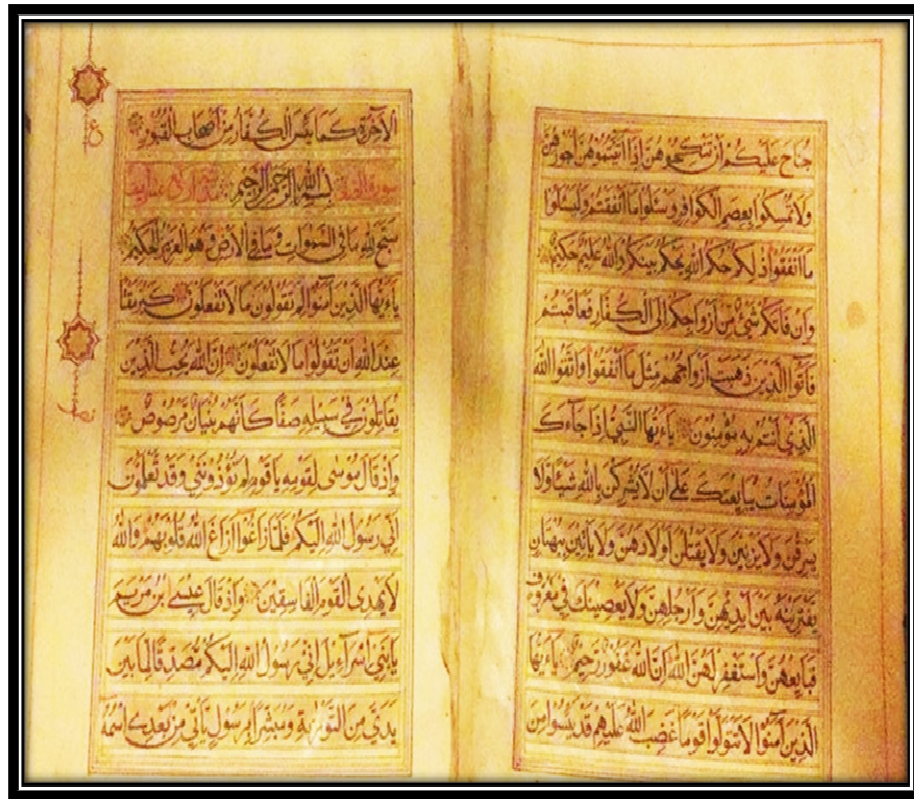 جناح عليكم أن تنكحوهن إذا آتيتموهن أجورهن
ولا تمسكوا بعصم الكوافر وسئلوا ما أنفقتم وليسئلوا
ما أنفقوا ذلكم حكم الله يحكم بينكم والله عليم حكيم
وإن فاتكم شئ من أزواجكم إلى الكفار فعاقبتم
فآتوا الذين ذهبت أزواجهم مثل ما أنفقوا واتقوا الله
الذي أنتم به مؤمنون ياءيها النبي إذا جاءك
المؤمنات يبايعنك على أن لا يشركن بالله شيئا ولا
يسرقن ولا يزنين ولا يقتلن أولادهن ولا يأتين ببهتان
يفترينه بين أيديهن وأرجلهن ولا يعصينك في معروف
فبايعهن واستغفر لهن الله إن الله غفور رحيم ياءيها
الذين آمنوا لا تتولوا قوما غضب الله عليهم قد يئسوا من
الآخرة كما يئس الكفار من أصحاب القبور
بسم الله الرحمن الرحيم
سبح لله ما في السموات وما في الأرض وهو العزيز الحكيم
ياءيها الذين آمنوا لم تقولون ما لا تفعلون كبر مقتا
عند الله أن تقولوا ما لا تفعلون إن الله يحب الذين
يقاتلون في سبيله صفا كأنهم بنيان مرصوص
وإذ قال موسى لقومه يا قوم لم تؤذونني وقد تعلمون
أني رسول الله إليكم فلما زاغوا أزاغ الله قلوبهم والله
لا يهدي القوم الفاسقين وإذ قال عيسى ابن مريم
يا بني إسراءيل إني رسول الله إليكم مصدقا لما بين
يدي من التورية ومبشرا برسول يأتي من بعدي اسمه
ع